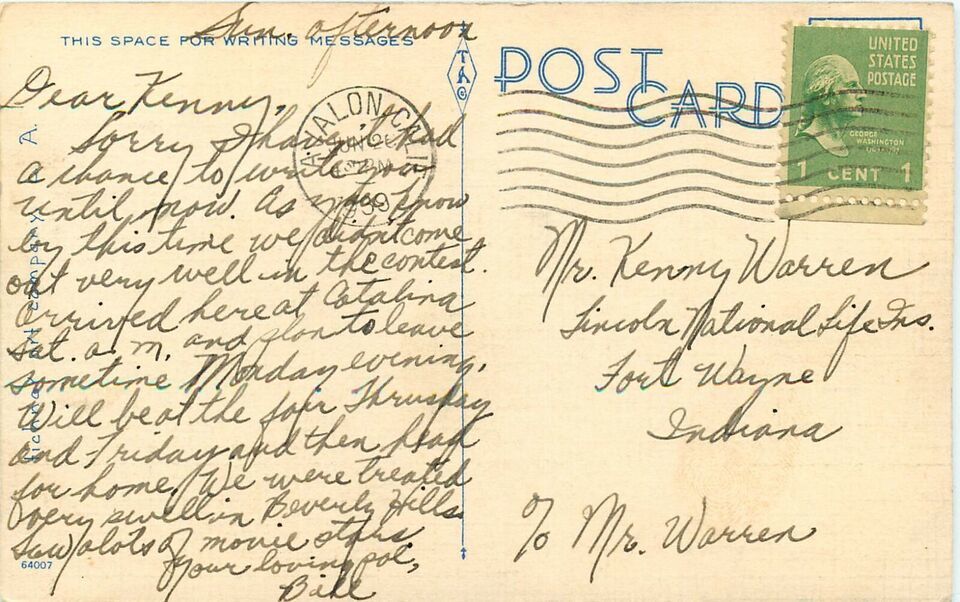 Sun. afternoon
THIS SPACE FOR WRITING MESSAGES
Dear Kenny,
Sorry I haven't had
a chance to write you
until now. As you know
by this time we didn't come
out very well in the contest.
Arrived here at Catalina
Sat. a.m. and plan to leave
sometime Monday evening.
Will be at the fair Thursday
and Friday and then head
for home. We were treated
very swell in Beverly Hills.
Saw alots of movie stars.
Your loving pal,
Bill
64007
T A ©
POST CARD
AVALON, CALIF.
JUN 26
PM
1939
UNITED
STATES
POSTAGE
GEORGE
WASHINGTON
1 CENT 1
Mr. Kenny Warren
Lincoln National Life Ins.
Fort Wayne
Indiana
% Mr. Warren